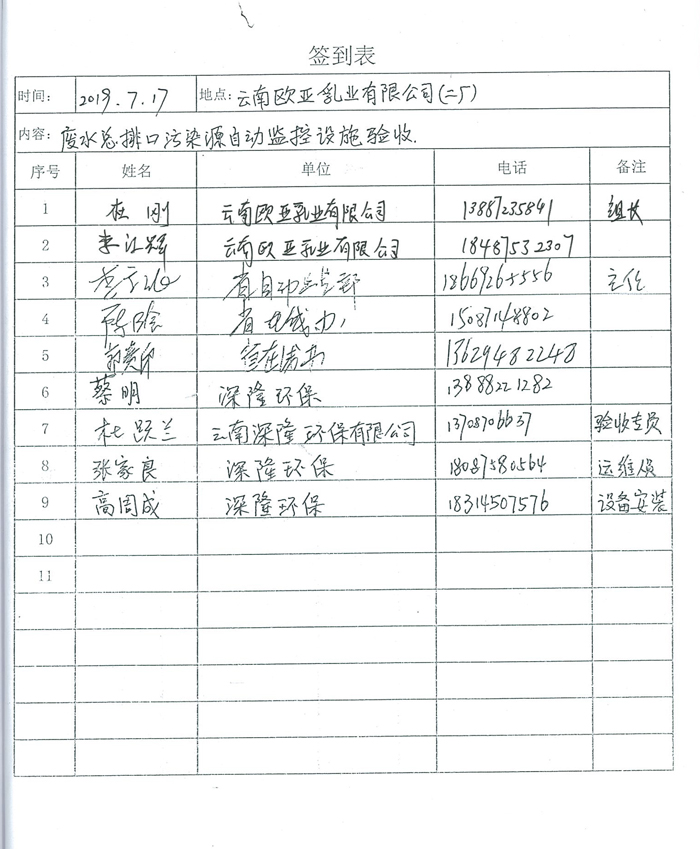 签到表
时间: 2019.7.17 地点: 云南欧亚乳业有限公司(二厂)
内容: 废水总排口污染源自动监控设施验收.
序号 姓名 单位 电话 备注
1 杜刚 云南欧亚乳业有限公司 13887235841 组长
2 李江辉 云南欧亚乳业有限公司 18487532307
3 省自动 18669265556 主任
4 省 15087148802
5 13629482248
6 蔡明 深隆环保 13888221282
7 杜跃兰 云南深隆环保有限公司 13708706637 验收专员
8 张家良 深隆环保 18087580564 运维员
9 高周成 深隆环保 18314507576 设备安装
10
11